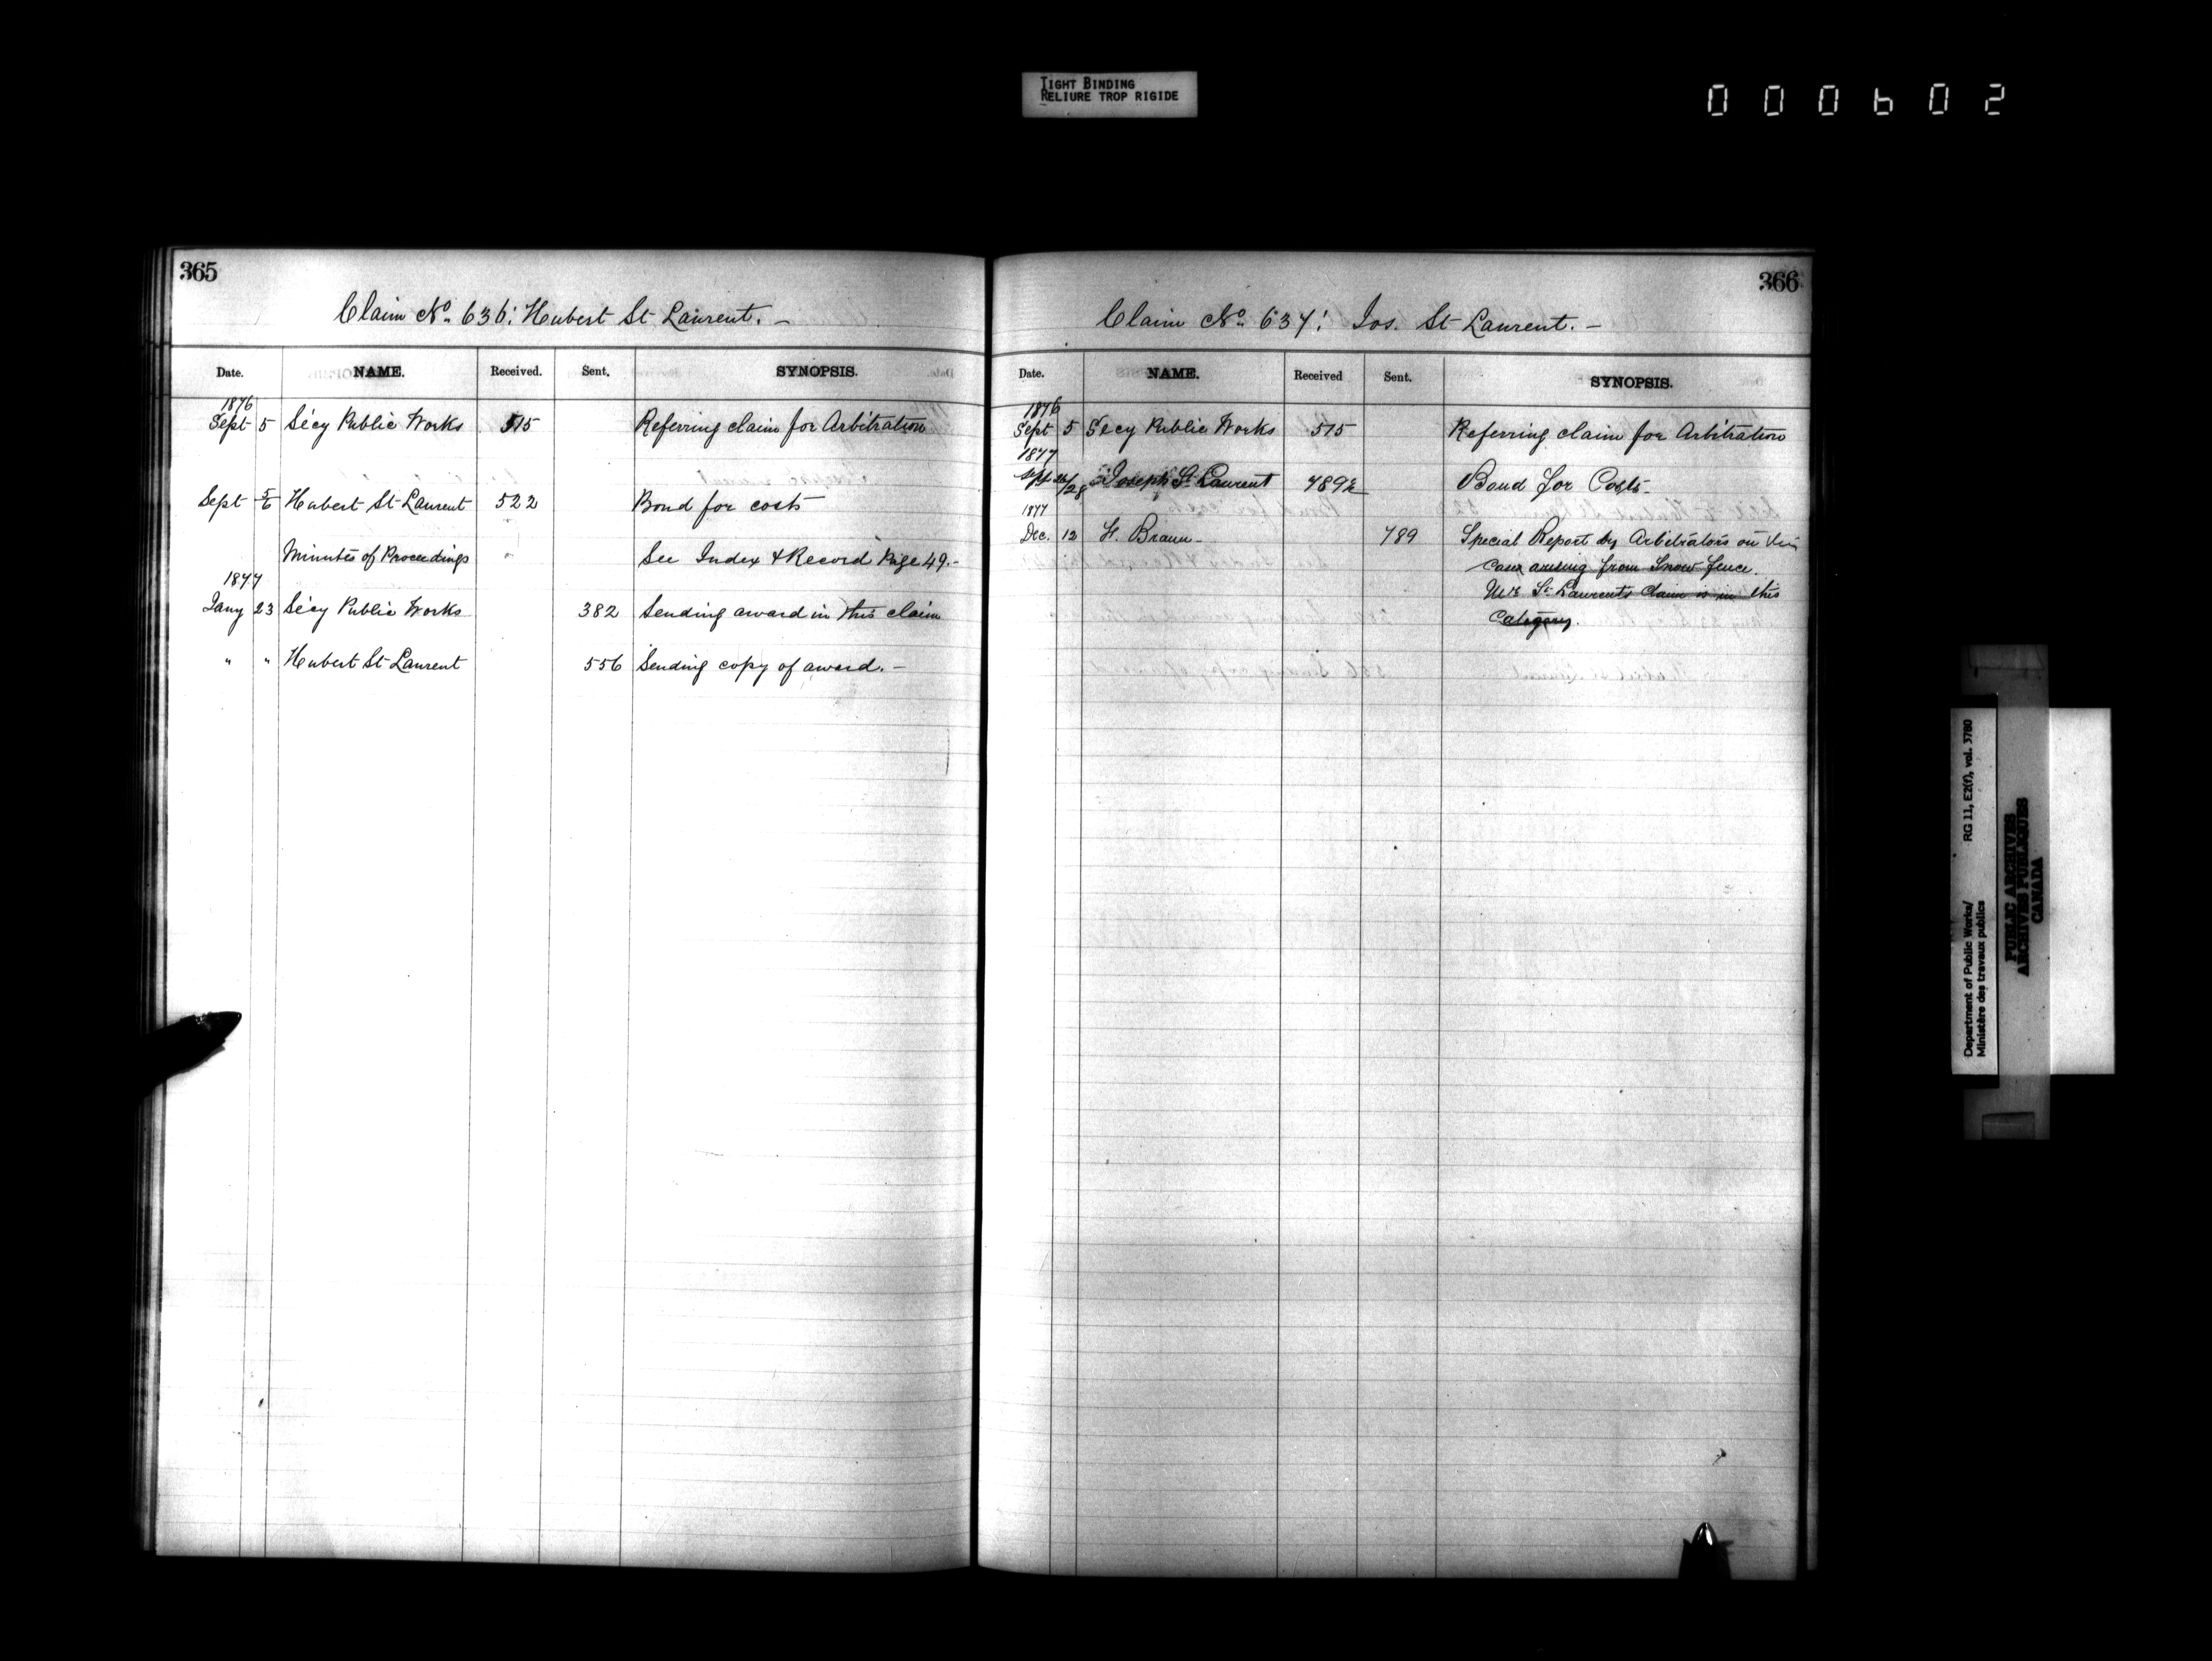 TIGHT BINDING
RELIURE TROP RIGIDE
000602
365
Claim No. 636: Hubert St Laurent. –
Date. NAME. Received. Sent. SYNOPSIS.
1876
Sept 5 Sécy Public Works 515 Referring claim for Arbitration
Sept 5/6 Hubert St Laurent 522 Bond for costs
Minutes of Proceedings See Index & Record Page 49.-
1877
Jany 23 Sécy Public Works 382 Sending award in this claim
" " Hubert St Laurent 556 Sending copy of award. –
366
Claim No. 637: Jos. St Laurent. –
Date. NAME. Received Sent. SYNOPSIS.
1876
Sept 5 Secy Public Works 515 Referring claim for Arbitration
1877
Sept /28 Joseph St Laurent 789½ Bond for Costs-
1877
Dec. 12 F. Braun- 789 Special Report by Arbitrators on
Cases arising from Snow fence.
St Laurent's Claim is in this
Category.
Department of Public Works/ RG 11, E2(f), vol. 3780
Ministère des travaux publics
PUBLIC ARCHIVES
ARCHIVES PUBLIQUES
CANADA